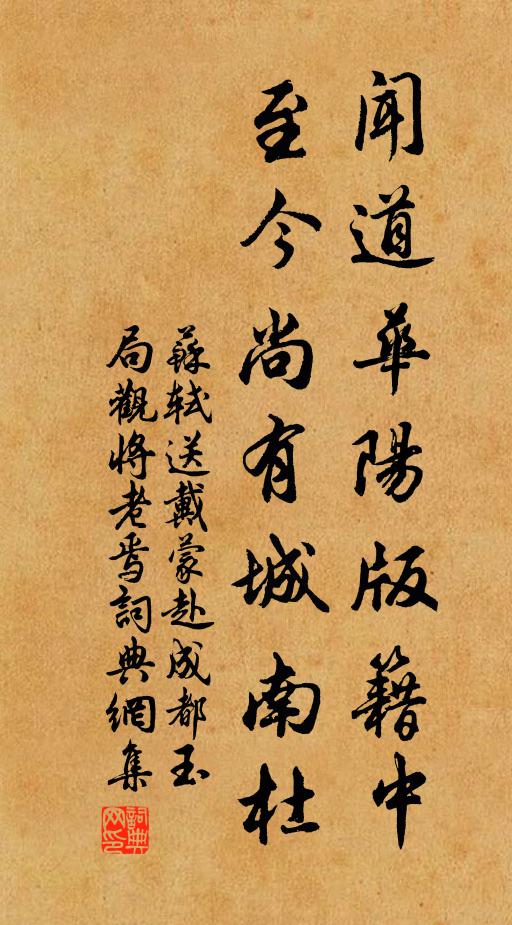 闻道華陽版籍中
至今尚有城南杜
蘇軾送戴蒙赴成都玉
局觀将老焉詞典網集
詞典网印